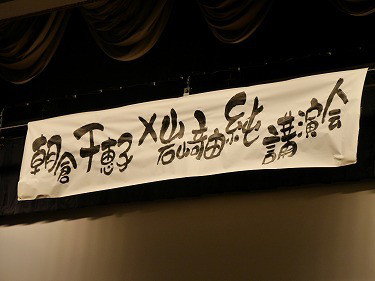 朝倉千恵子×岩崎由純講演会